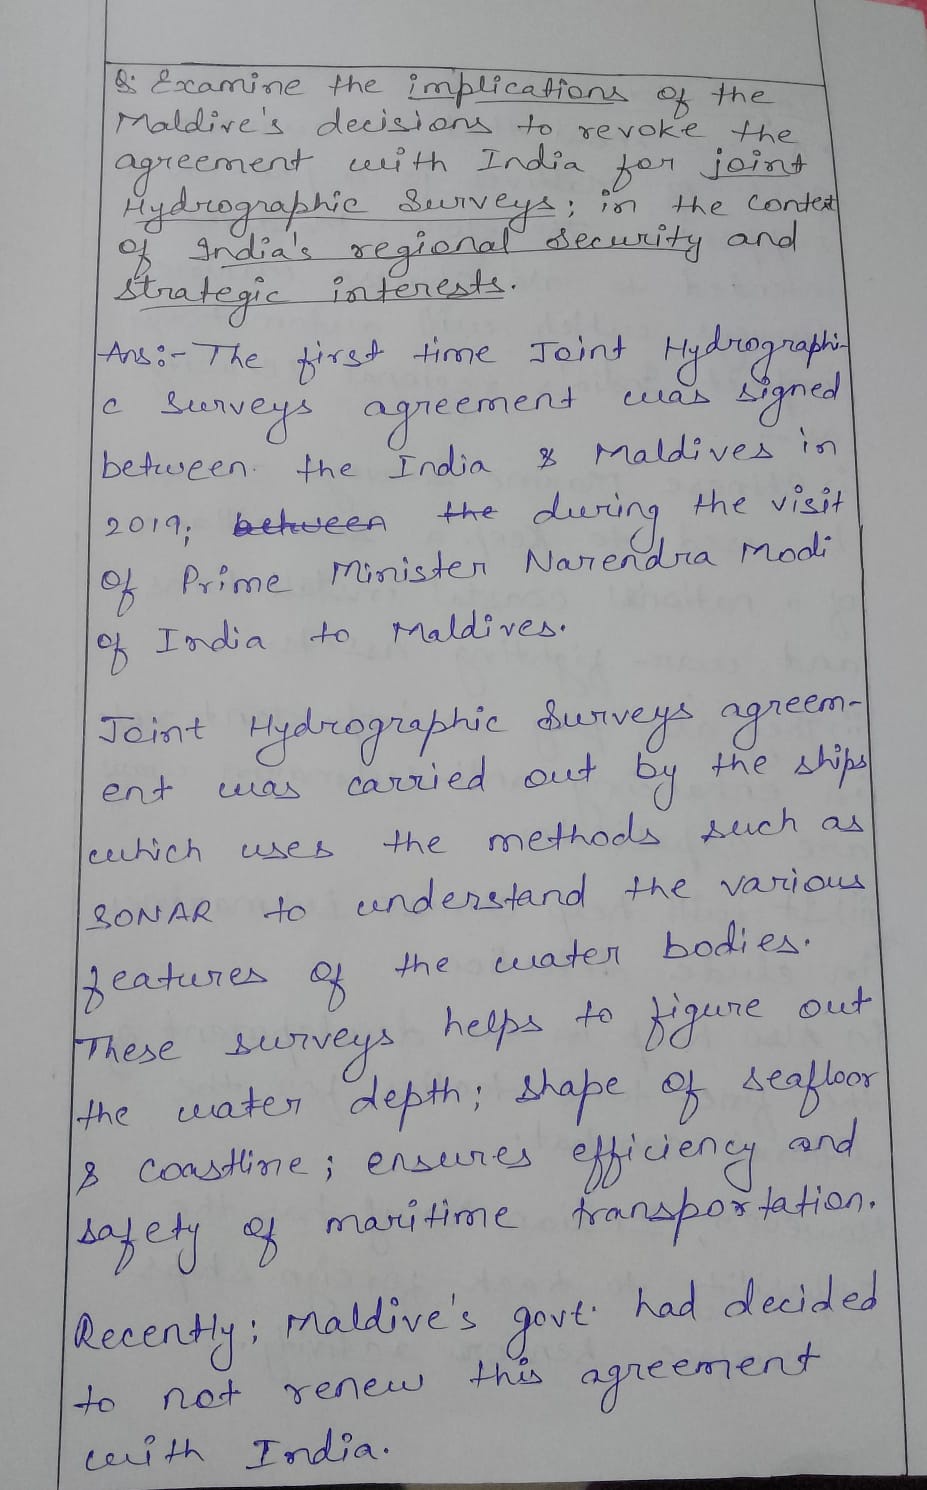 Q: Examine the implications of the
Maldive's decisions to revoke the
agreement with India for joint
Hydrographic Surveys; in the context
of India's regional security and
strategic interests.
Ans:- The first time Joint Hydrographi-
c Surveys agreement was signed
between the India & Maldives in
2019; between the during the visit
of Prime Minister Narendra Modi
of India to Maldives.
Joint Hydrographic Surveys agreem-
ent was carried out by the ships
which uses the methods such as
SONAR to understand the various
features of the water bodies.
These surveys helps to figure out
the water depth; shape of seafloor
& coastline; ensures efficiency and
safety of maritime transportation.
Recently; Maldive's govt. had decided
to not renew this agreement
with India.